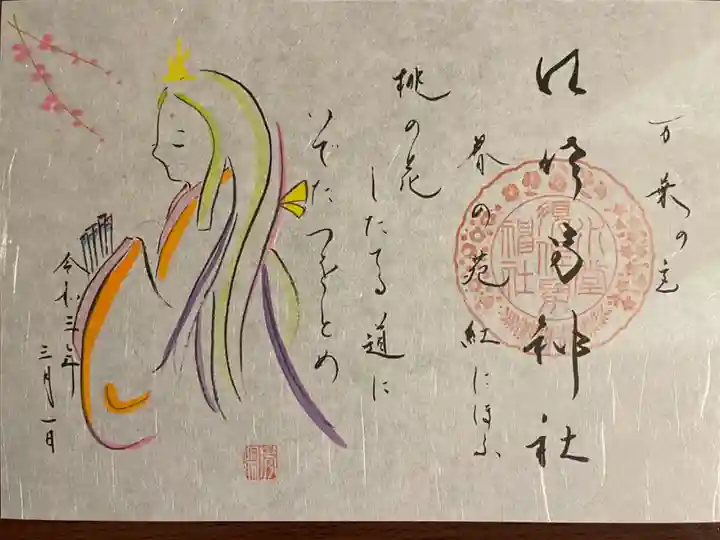 万葉の
神社
春の苑
紅にほふ
桃の花
したてる道に
いでたつをとめ
令和三年
三月一日